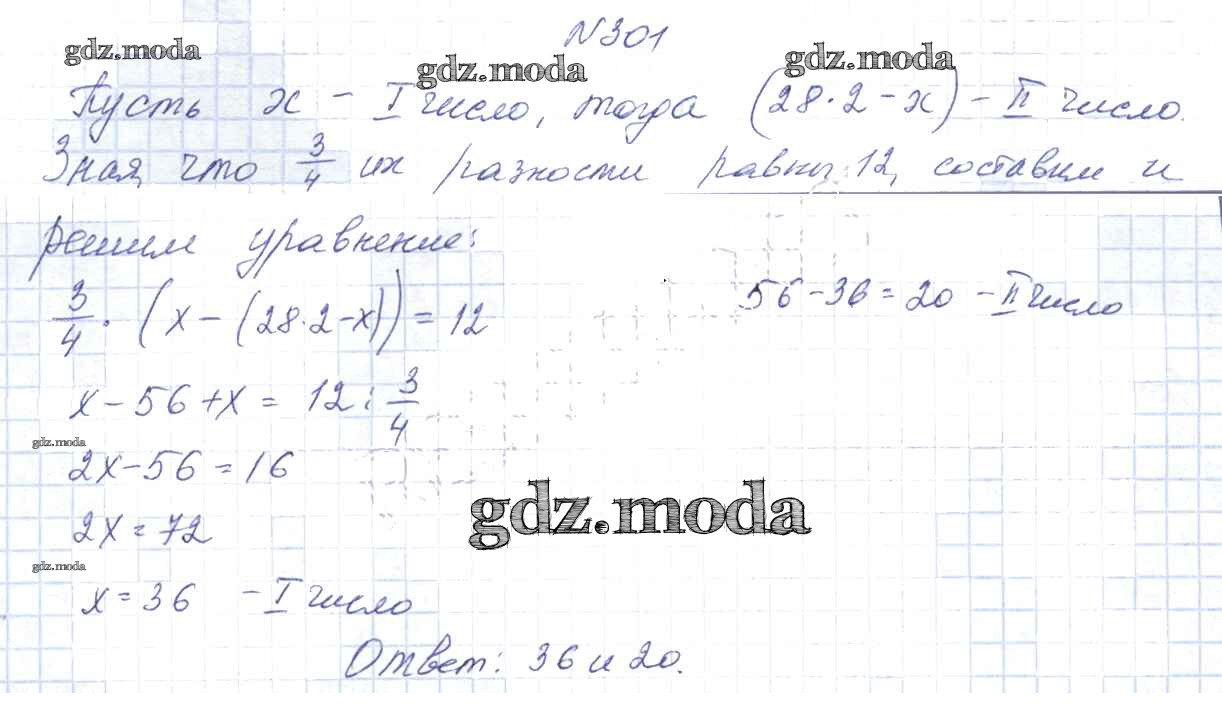 №301
gdz.moda
gdz.moda
gdz.moda
Пусть x – I число, тогда (28·2-x) – II число.
Зная, что 3/4 их разности равны 12, составим и
решим уравнение:
3/4·(x-(28·2-x))=12
56-36=20 – II число
x-56+x=12:3/4
gdz.moda
2x-56=16
gdz.moda
2x=72
gdz.moda
x=36 – I число
Ответ: 36 и 20.